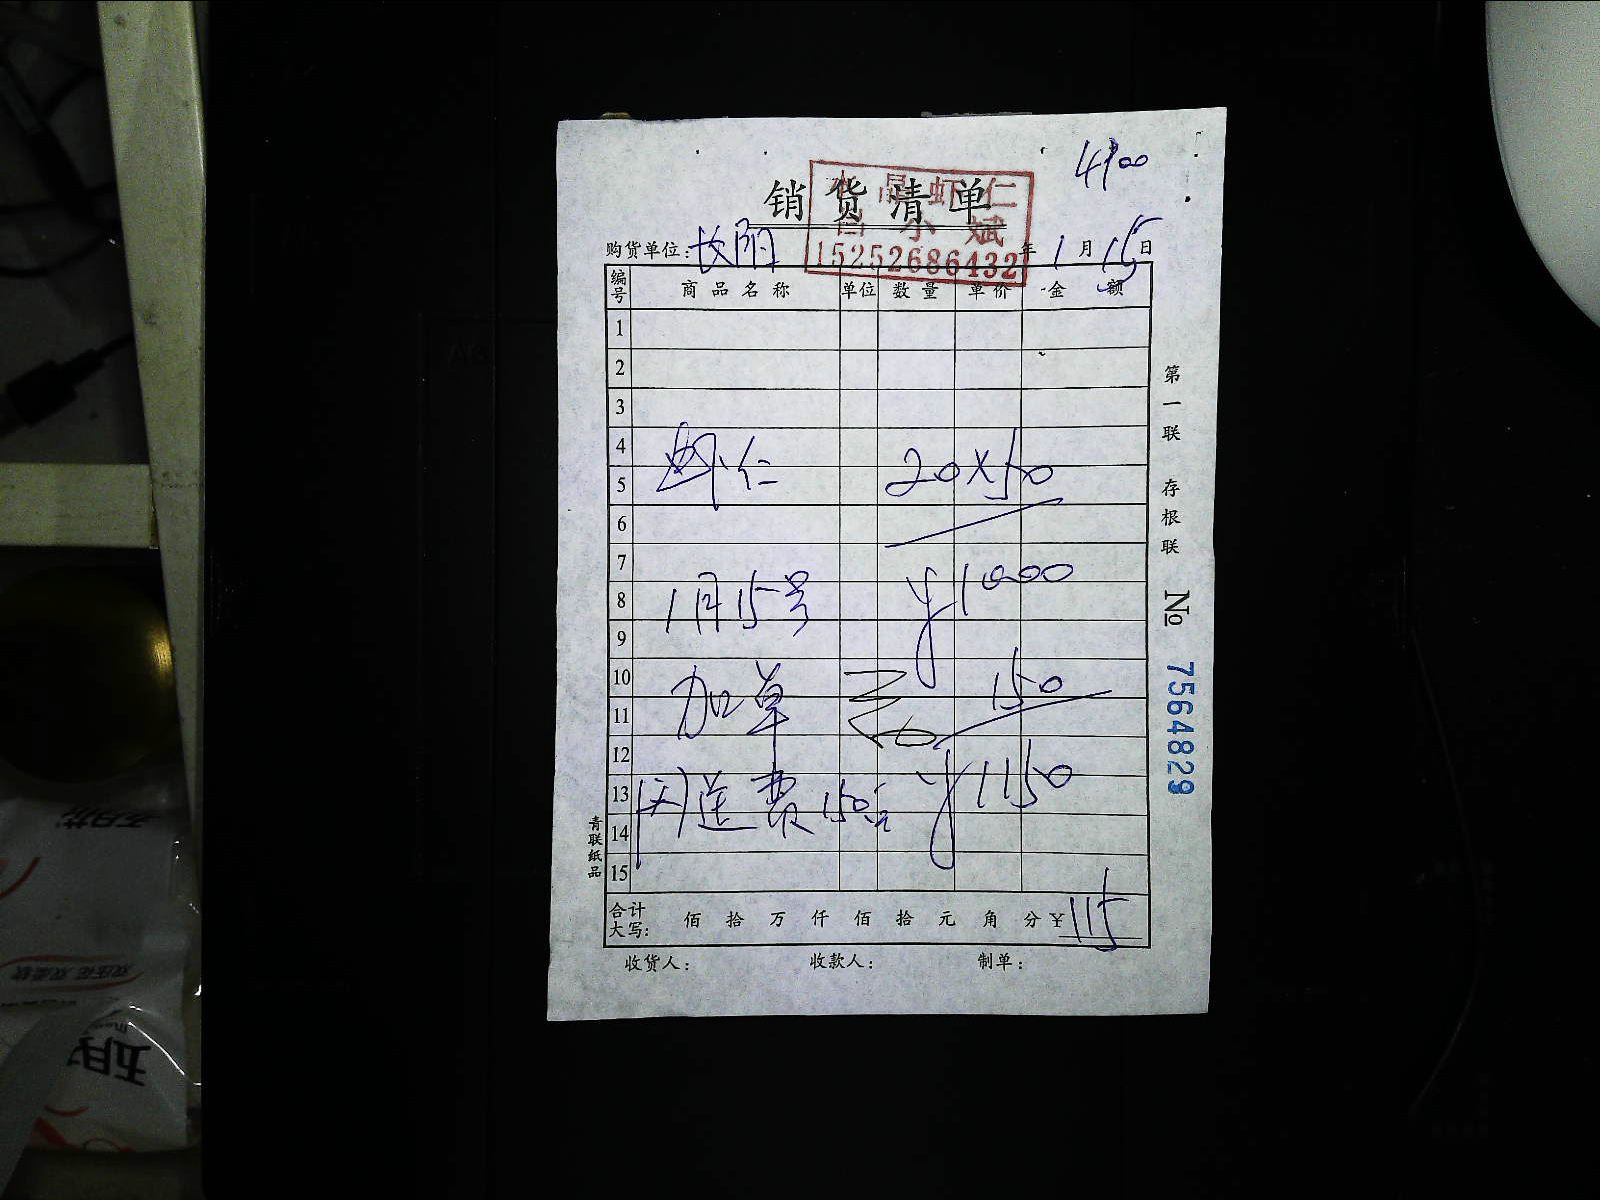 4900
水晶虾仁
销货清单
小斌
15252686432
购货单位: 长阳 年 1 月 15 日
编号 商品名称 单位 数量 单价 金额
1
2
3
4
虾仁 20×50
5
6
7
1月15号 ¥1000
8
9
10
加单 150
11
12
送费150元 ¥1150
13
14
15
合计大写: 佰 拾 万 仟 佰 拾 元 角 分 ¥ 115
收货人: 收款人: 制单:
第一联 存根联 № 7564829
青联纸品
五月花
五月花